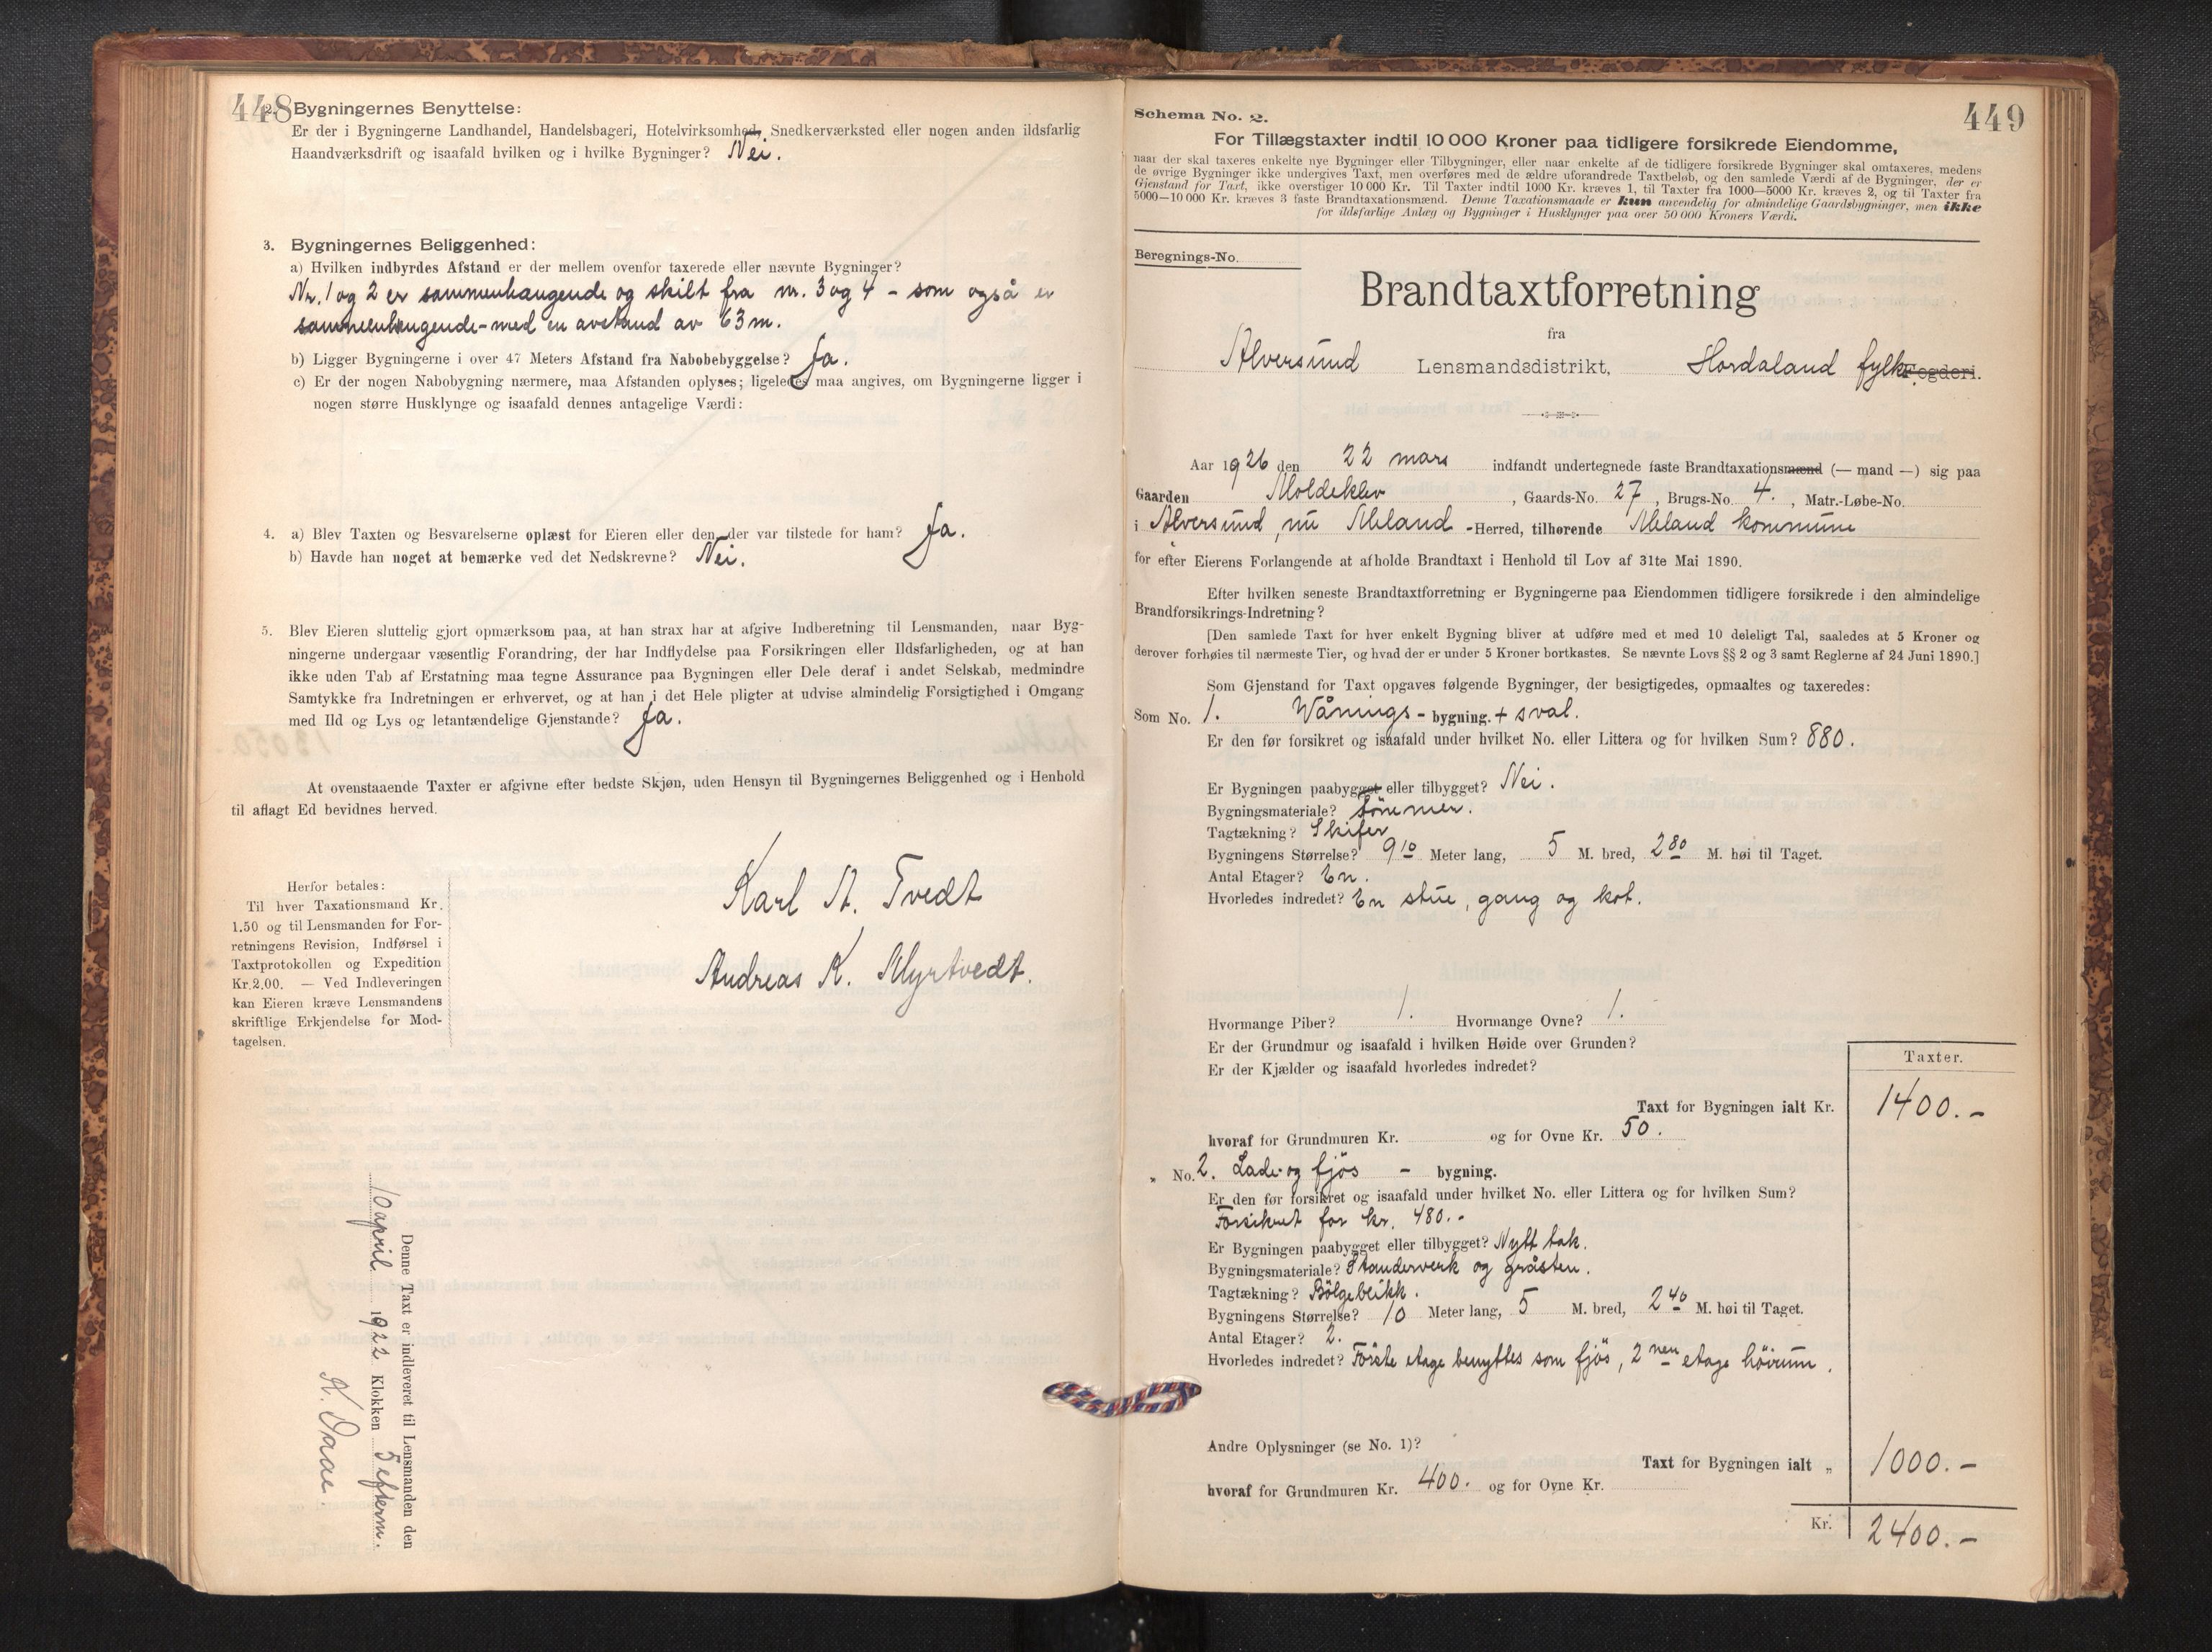 448
2. Bygningernes Benyttelse:
Er der i Bygningerne Landhandel, Handelsbageri, Hotelvirksomhed, Snedkerværksted eller nogen anden ildsfarlig
Haandværksdrift og isaafald hvilken og i hvilke Bygninger? Nei.
3. Bygningernes Beliggenhed:
a) Hvilken indbyrdes Afstand er der mellem ovenfor taxerede eller nævnte Bygninger?
Nr. 1 og 2 er sammenhangende og skilt fra nr. 3 og 4 - som også er
sammenhengende - med en avstand av 63 m.
b) Ligger Bygningerne i over 47 Meters Afstand fra Nabobebyggelse? Ja.
c) Er der nogen Nabobygning nærmere, maa Afstanden oplyses; ligeledes maa angives, om Bygningerne ligger i
nogen større Husklynge og isaafald dennes antagelige Værdi:
4. a) Blev Taxten og Besvarelserne oplæst for Eieren eller den, der var tilstede for ham? Ja.
b) Havde han noget at bemærke ved det Nedskrevne? Nei.
5. Blev Eieren sluttelig gjort opmærksom paa, at han strax har at afgive Indberetning til Lensmanden, naar Byg-
ningerne undergaar væsentlig Forandring, der har Indflydelse paa Forsikringen eller Ildsfarligheden, og at han
ikke uden Tab af Erstatning maa tegne Assurance paa Bygningen eller Dele deraf i andet Selskab, medmindre
Samtykke fra Indretningen er erhvervet, og at han i det Hele pligter at udvise almindelig Forsigtighed i Omgang
med Ild og Lys og letantændelige Gjenstande? Ja.
At ovenstaaende Taxter er afgivne efter bedste Skjøn, uden Hensyn til Bygningernes Beliggenhed og i Henhold
til aflagt Ed bevidnes herved.
Karl A. Tvedt
Andreas K. Myrtvedt.
Herfor betales:
Til hver Taxationsmand Kr.
1.50 og til Lensmanden for For-
retningens Revision, Indførsel i
Taxtprotokollen og Expedition
Kr. 2.00. — Ved Indleveringen
kan Eieren kræve Lensmandens
skriftlige Erkjendelse for Mod-
tagelsen.
Denne Taxt er indleveret til Lensmanden den
10 april 1922 Klokken 5 efterm.
K. Daae.
449
Schema No. 2.
For Tillægstaxter indtil 10 000 Kroner paa tidligere forsikrede Eiendomme,
naar der skal taxeres enkelte nye Bygninger eller Tilbygninger, eller naar enkelte af de tidligere forsikrede Bygninger skal omtaxeres, medens
de øvrige Bygninger ikke undergives Taxt, men overføres med de ældre uforandrede Taxtbeløb, og den samlede Værdi af de Bygninger, der er
Gjenstand for Taxt, ikke overstiger 10 000 Kr. Til Taxter indtil 1000 Kr. kræves 1, til Taxter fra 1000—5000 Kr. kræves 2, og til Taxter fra
5000—10 000 Kr. kræves 3 faste Brandtaxationsmænd. Denne Taxationsmaade er kun anvendelig for almindelige Gaardsbygninger, men ikke
for ildsfarlige Anlæg og Bygninger i Husklynger paa over 50 000 Kroners Værdi.
Beregnings-No.
Brandtaxtforretning
fra
Alversund Lensmandsdistrikt, Hordaland fylke Fogderi.
Aar 1926 den 22 mars indfandt undertegnede faste Brandtaxationsmænd (— mand —) sig paa
Gaarden Moldeklev, Gaards-No. 27, Brugs-No. 4., Matr.-Løbe-No.
i Alversund, nu Meland -Herred, tilhørende Meland kommune
for efter Eierens Forlangende at afholde Brandtaxt i Henhold til Lov af 31te Mai 1890.
Efter hvilken seneste Brandtaxtforretning er Bygningerne paa Eiendommen tidligere forsikrede i den almindelige
Brandforsikrings-Indretning?
[Den samlede Taxt for hver enkelt Bygning bliver at udføre med et med 10 deleligt Tal, saaledes at 5 Kroner og
derover forhøies til nærmeste Tier, og hvad der er under 5 Kroner bortkastes. Se nævnte Lovs §§ 2 og 3 samt Reglerne af 24 Juni 1890.]
Som Gjenstand for Taxt opgaves følgende Bygninger, der besigtigedes, opmaaltes og taxeredes:
Som No. 1. Vånings - bygning. + sval.
Er den før forsikret og isaafald under hvilket No. eller Littera og for hvilken Sum? 880.
Er Bygningen paabygget eller tilbygget? Nei.
Bygningsmateriale? Tömmer.
Tagtækning? Skifer
Bygningens Størrelse? 9 10 Meter lang, 5 M. bred, 2 80 M. høi til Taget.
Antal Etager? En.
Hvorledes indredet? En stue, gang og kot.
Hvormange Piber? 1. Hvormange Ovne? 1.
Er der Grundmur og isaafald i hvilken Høide over Grunden?
Er der Kjælder og isaafald hvorledes indredet?
Taxter.
Taxt for Bygningen ialt Kr. 1400.-
hvoraf for Grundmuren Kr. og for Ovne Kr. 50.
" No. 2. Lade- og fjös - bygning.
Er den før forsikret og isaafald under hvilket No. eller Littera og for hvilken Sum?
Forsikret for kr. 480.-
Er Bygningen paabygget eller tilbygget? Nytt tak.
Bygningsmateriale? Standerverk og gråsten.
Tagtækning? Bölgeblikk.
Bygningens Størrelse? 10 Meter lang, 5 M. bred, 2 40 M. høi til Taget.
Antal Etager? 2.
Hvorledes indredet? Förste etage benyttes som fjös, 2 nen etage höirum.
Andre Oplysninger (se No. 1)?
Taxt for Bygningen ialt " 1000.-
hvoraf for Grundmuren Kr. 400. og for Ovne Kr.
Kr. 2400.-